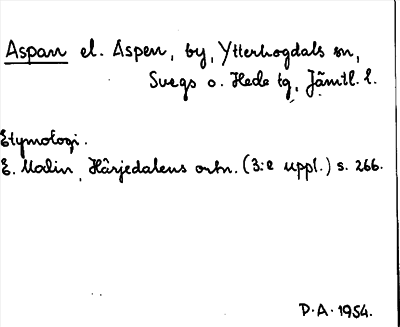 Aspan el. Aspen, by, Ytterhogdals sn,
Svegs o. Hede tg, Jämtl. l.
Etymologi.
E. Modin, Härjedalens ortn. (3:e uppl.) s. 266.
P.A. 1954.